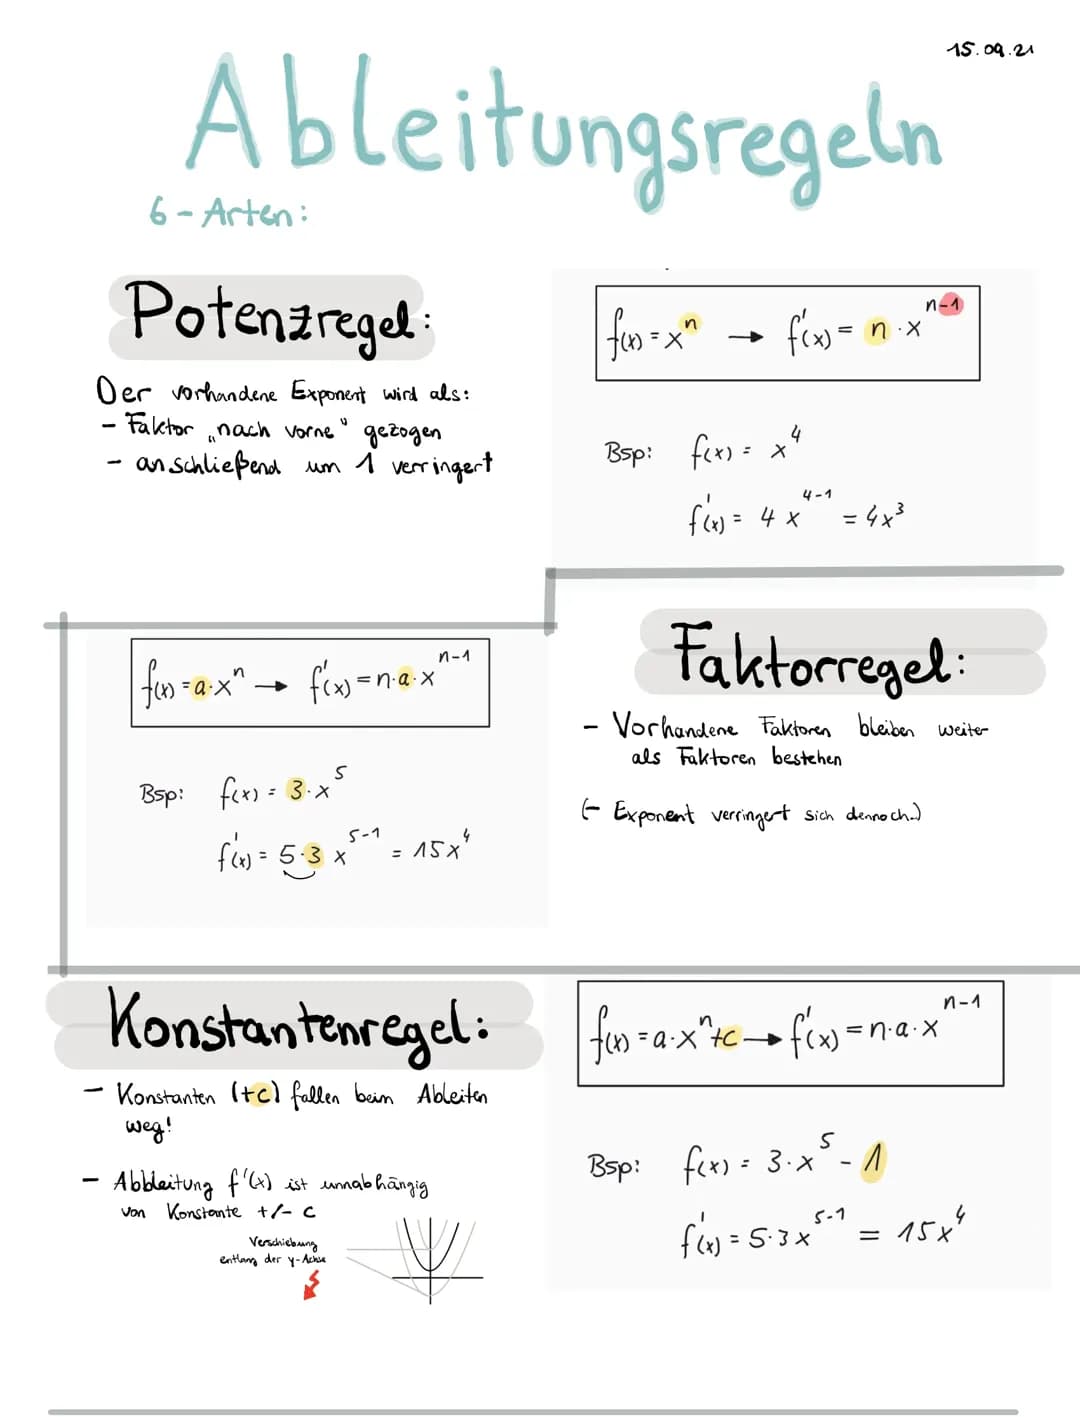 15.09.21
Ableitungsregeln
6 - Arten:
Potenzregel:
Der vorhandene Exponent wird als:
- Faktor „nach vorne" gezogen
- anschließend um 1 verringert
f(x) = xⁿ → f'(x) = n · xⁿ⁻¹
Bsp: f(x) = x⁴
f'(x) = 4 x⁴⁻¹ = 4x³
Faktorregel:
- Vorhandene Faktoren bleiben weiter
als Faktoren bestehen
(- Exponent verringert sich dennoch.)
f(x) = a·xⁿ → f'(x) = n·a·xⁿ⁻¹
Bsp: f(x) = 3·x⁵
f'(x) = 5·3 x⁵⁻¹ = 15x⁴
Konstantenregel:
- Konstanten (+c) fallen beim Ableiten
weg!
- Abbleitung f'(x) ist unnabhängig
von Konstante +/- c
Verschiebung
entlang der y-Achse
f(x) = a·xⁿ+c → f'(x) = n·a·xⁿ⁻¹
Bsp: f(x) = 3·x⁵ - 1
f'(x) = 5·3x⁵⁻¹ = 15x⁴